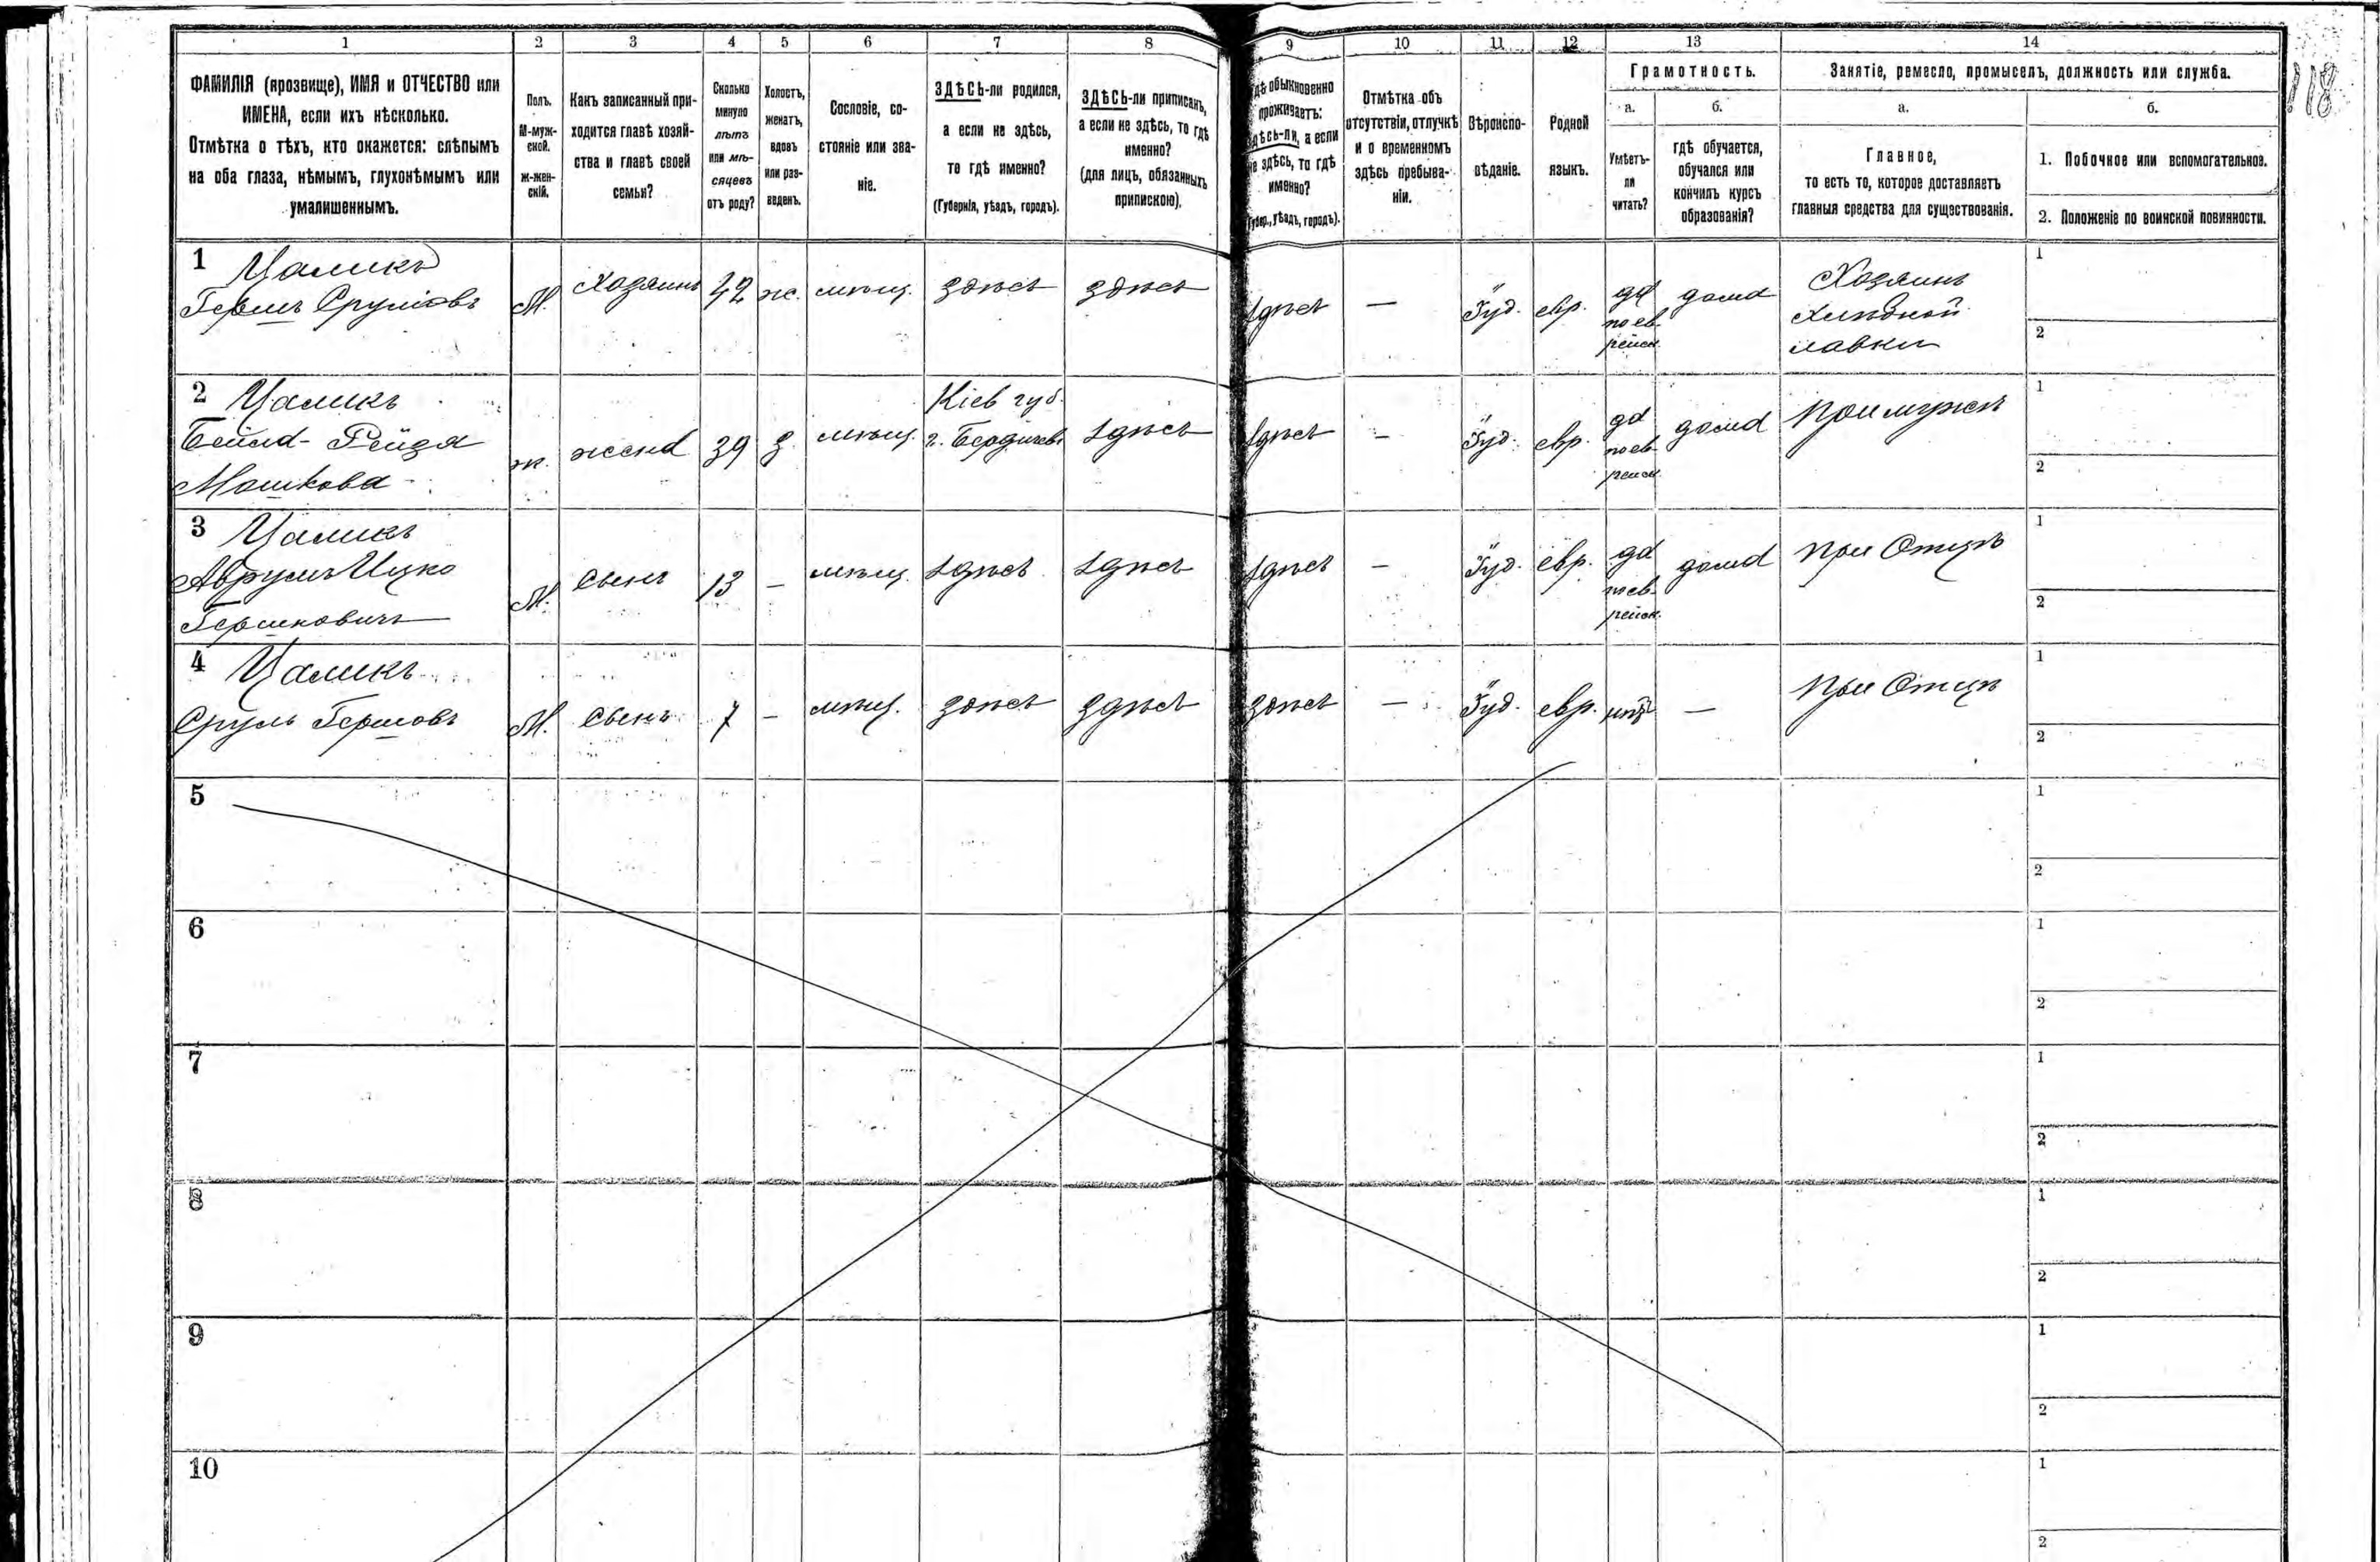 118
1 2 3 4 5 6 7 8 9 10 11 12 13 14
ФАМИЛІЯ (прозвище), ИМЯ и ОТЧЕСТВО или
ИМЕНА, если ихъ нѣсколько.
Отмѣтка о тѣхъ, кто окажется: слѣпымъ
на оба глаза, нѣмымъ, глухонѣмымъ или
умалишеннымъ.
Полъ.
М-муж-
ской.
ж-жен-
скій.
Какъ записанный при-
ходится главѣ хозяй-
ства и главѣ своей
семьи?
Сколько
минуло
лѣтъ
или мѣ-
сяцевъ
отъ роду?
Холостъ,
женатъ,
вдовъ
или раз-
веденъ.
Сословіе, со-
стояніе или зва-
ніе.
ЗДѢСЬ-ли родился,
а если не здѣсь,
то гдѣ именно?
(Губернія, уѣздъ, городъ).
ЗДѢСЬ-ли приписанъ,
а если не здѣсь, то гдѣ
именно?
(для лицъ, обязанныхъ
припискою).
Гдѣ обыкновенно
проживаетъ:
здѣсь-ли, а если
не здѣсь, то гдѣ
именно?
(Губер., уѣздъ, городъ).
Отмѣтка объ
отсутствіи, отлучкѣ
и о временномъ
здѣсь пребыва-
ніи.
Вѣроиспо-
вѣданіе.
Родной
языкъ.
Грамотность.
а.
Умѣетъ-
ли
читать?
б.
гдѣ обучается,
обучался или
кончилъ курсъ
образованія?
Занятіе, ремесло, промыселъ, должность или служба.
а.
Главное,
то есть то, которое доставляетъ
главныя средства для существованія.
б.
1. Побочное или вспомогательное.
2. Положеніе по воинской повинности.
1 Цаликъ
Гершъ Сруліовъ
М.
Хозяинъ
42
ж.
мѣщ.
здѣсь
здѣсь
здѣсь
—
Іуд.
евр.
да
по ев-
рейск.
дома
Хозяинъ
хлѣбной
лавки
1
2
2 Цаликъ
Бейла-Рейзя
Мошкова
ж.
жена
39
з.
мѣщ.
Кіев губ.
г. Бердичевъ
здѣсь
здѣсь
—
Іуд.
евр.
да
по ев-
рейск.
дома
при мужѣ
1
2
3 Цаликъ
Аврумъ Ицко
Гершковичъ
М.
Сынъ
13
—
мѣщ.
здѣсь
здѣсь
здѣсь
—
Іуд.
евр.
да
по ев-
рейск.
дома
при Отцѣ
1
2
4 Цаликъ
Сруль Гершовъ
М.
Сынъ
7
—
мѣщ.
здѣсь
здѣсь
здѣсь
—
Іуд.
евр.
—
при Отцѣ
1
2
5
1
2
6
1
2
7
1
2
8
1
2
9
1
2
10
1
2